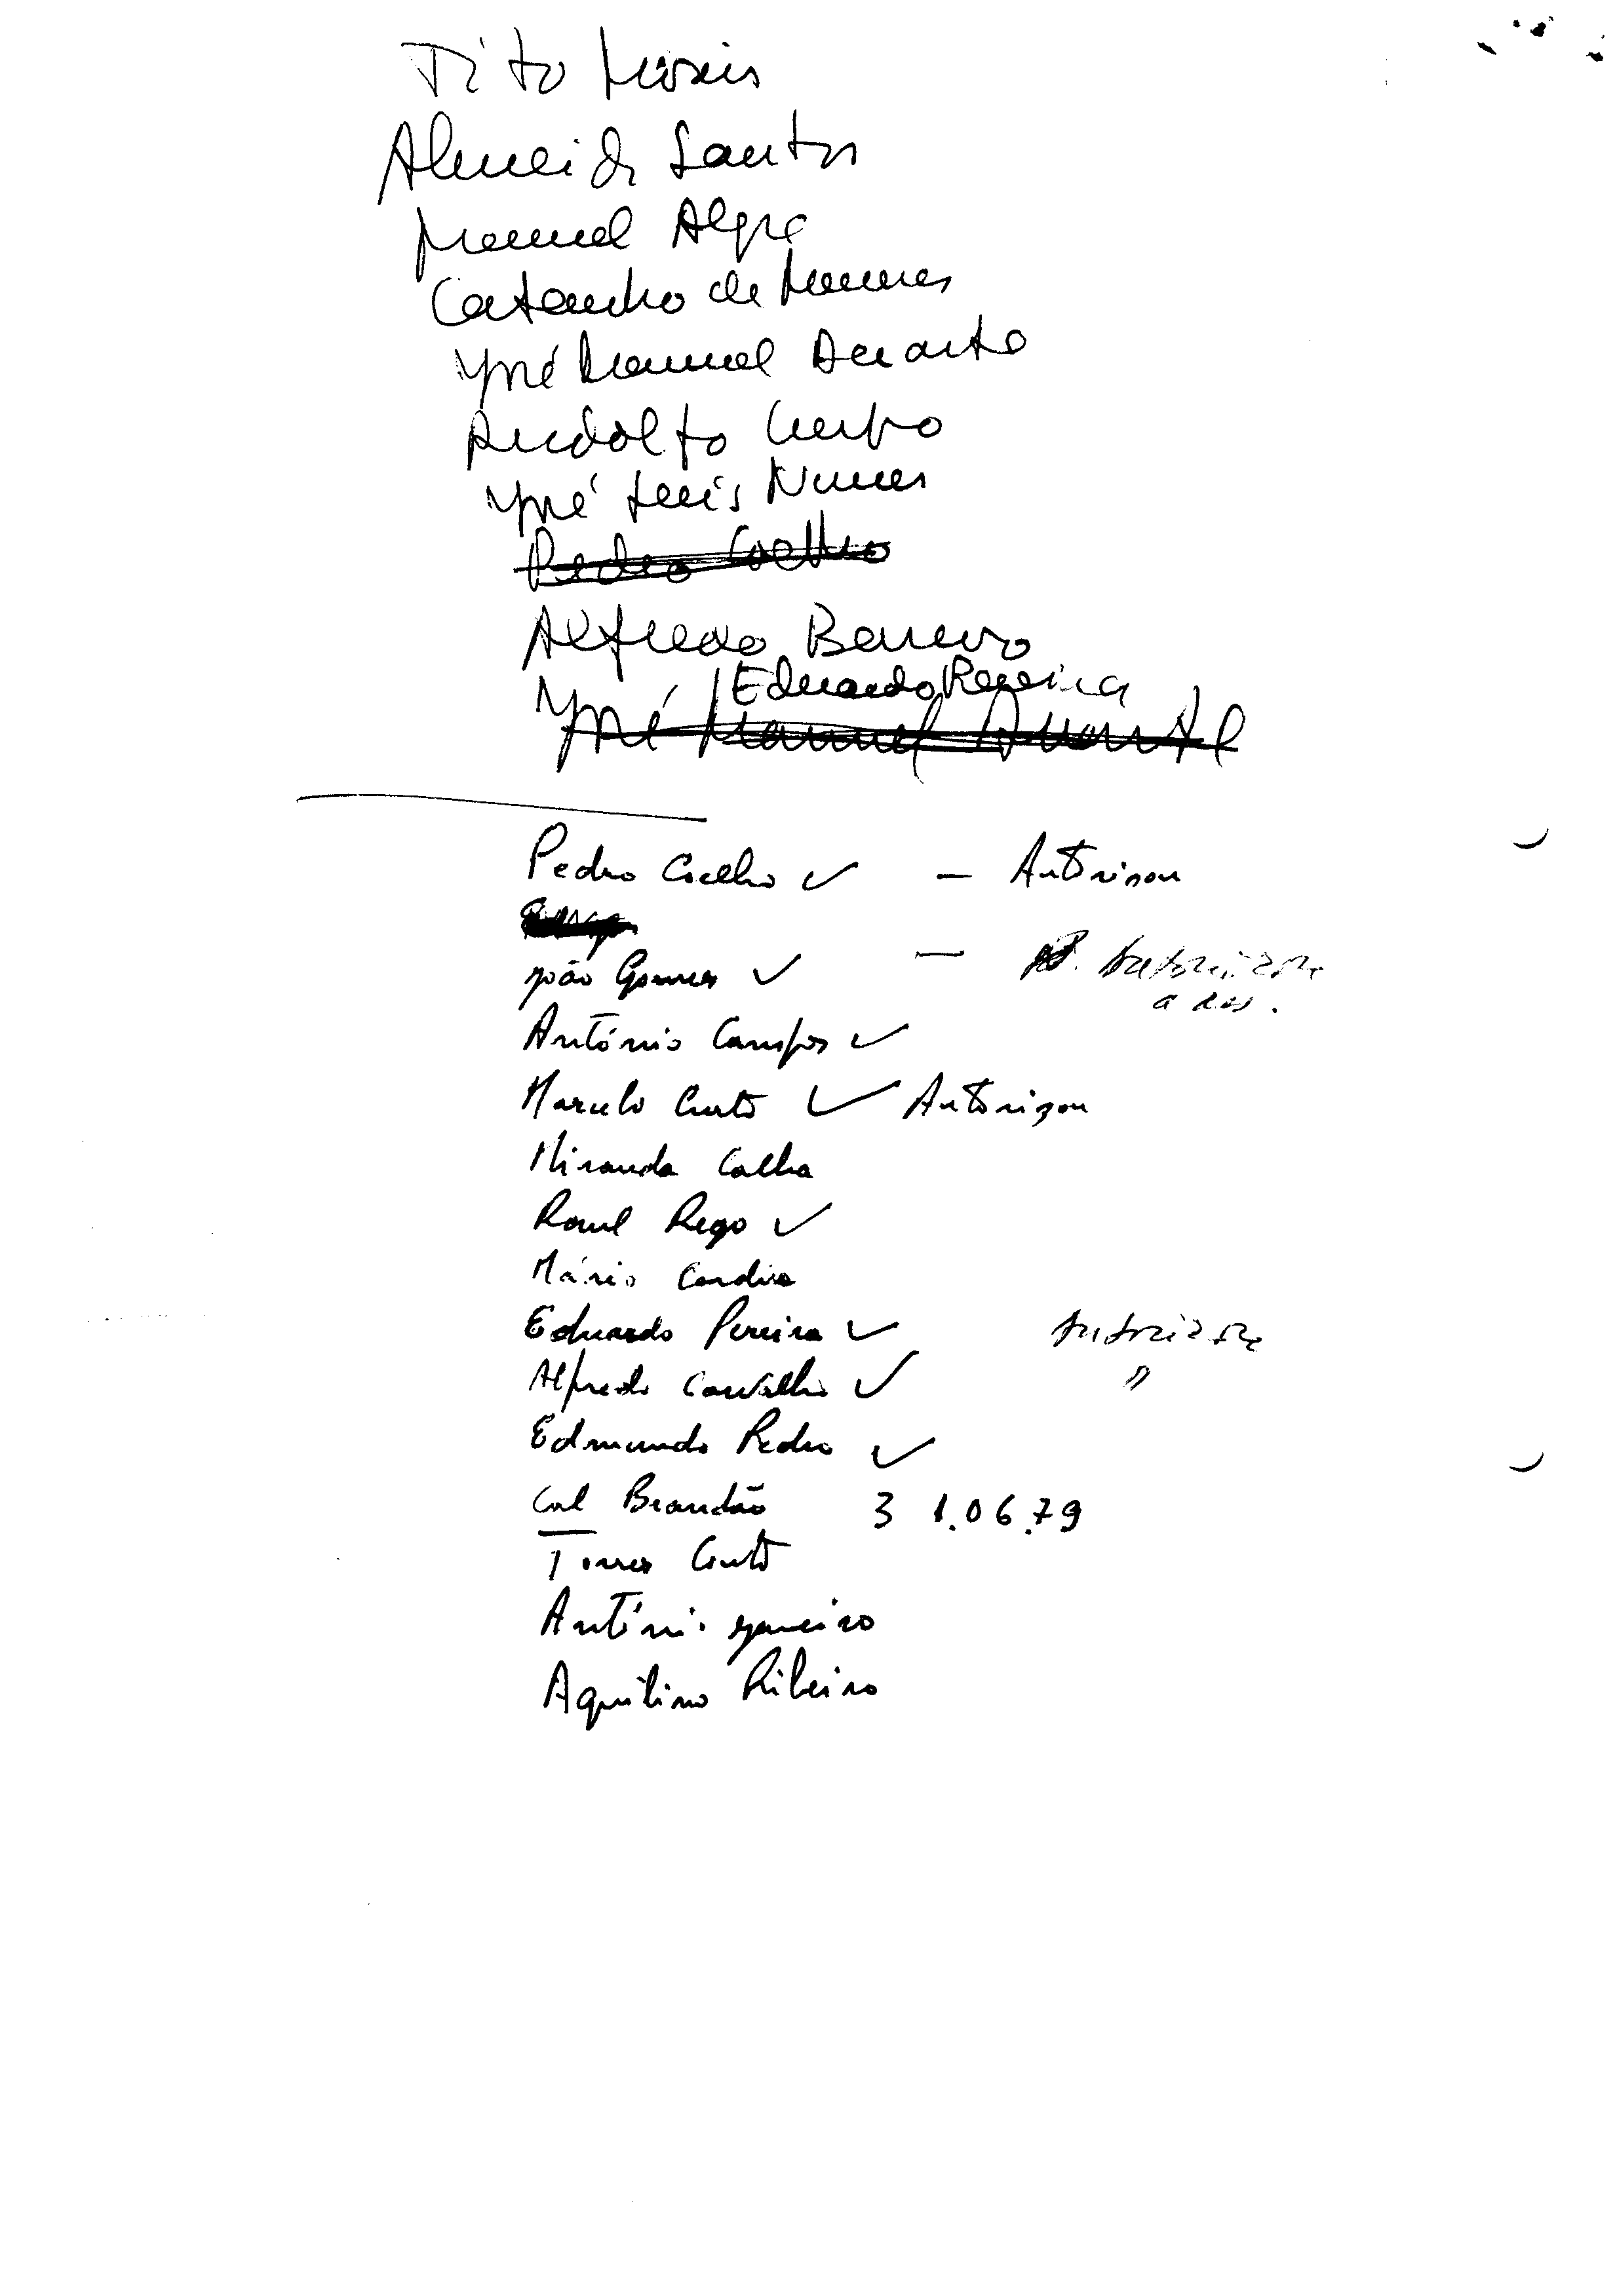 Tito Morais
Almeida Santos
Manuel Alegre
Catanho de Menezes
José Manuel Duarte
Rudolfo Crespo
José Luis Nunes
Pedro Coelho
Alfredo Barroso
Eduardo Pereira
José Manuel Duarte
Pedro Coelho ✓ — Autorizou
João Gomes ✓ — Autorizou
António Campos ✓
Marcelo Curto ✓ Autorizou
Miranda Calha
Raul Rego ✓
Mário Cardia
Eduardo Pereira ✓ Autorizou
Alfredo Carvalho ✓ "
Edmundo Pedro ✓
Cal Brandão 31.06.79
Torres Couto
António Janeiro
Aquilino Ribeiro